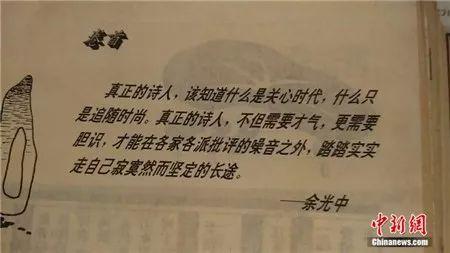 真正的诗人，该知道什么是关心时代，什么只
是追随时尚。真正的诗人，不但需要才气，更需要
胆识，才能在各家各派批评的噪音之外，踏踏实实
走自己寂寞然而坚定的长途。
——余光中
中新網
Chinanews.com